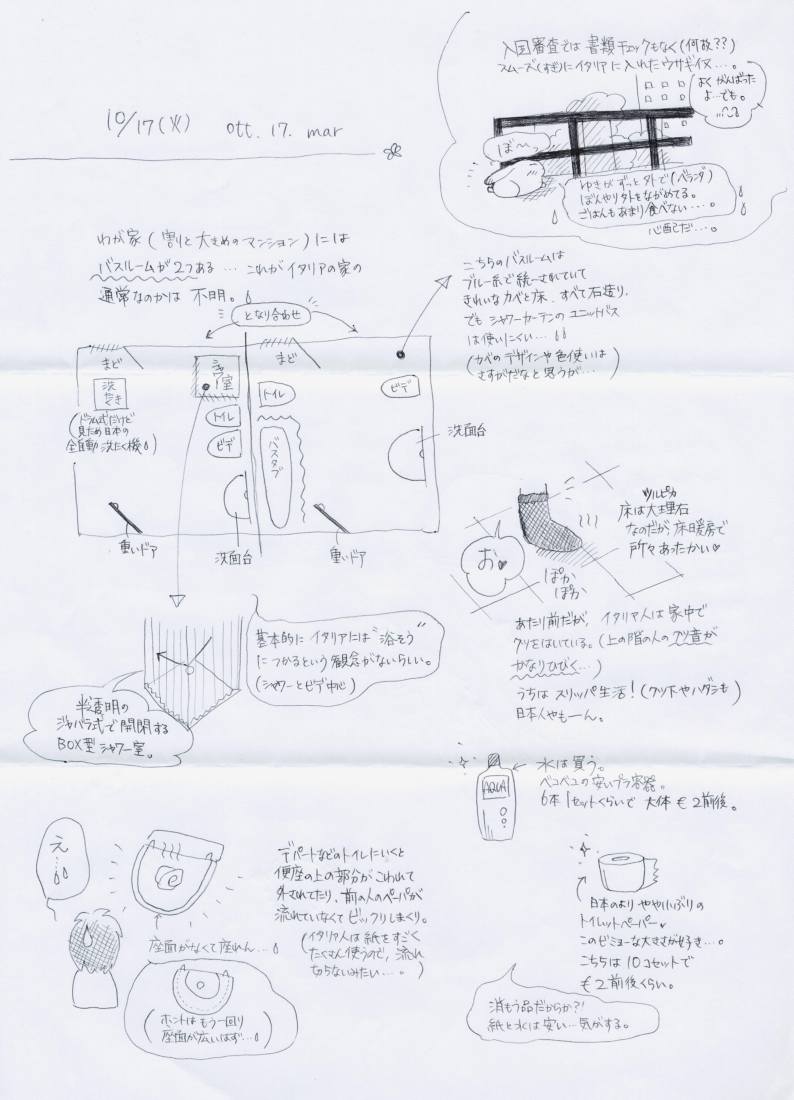 10/17(火) ott. 17. mar
入国審査では書類チェックもなく(何故??)
スムーズ(すぎ)にイタリアに入れたウサギイヌ…。
よくがんばった
よ…でも。
ぼ〜
ゆきがずっと外で(ベランダ)
ぼんやり外をながめてる。
ごはんもあまり食べない…。
心配だ…。
わが家(割と大きめのマンション)には
バスルームが2つある…これがイタリアの家の
通常なのかは不明。
となり合わせ
こちらのバスルームは
ブルー系で統一されていて
きれいなカベと床、すべて石造り。
でもシャワーカーテンのユニットバス
は使いにくい…
(カベのデザインや色使いは
さすがだなと思うが…)
まど
洗たくき
(ドラム式だけど
見ため日本の
全自動洗たく機)
シャワー室
トイレ
ビデ
まど
トイレ
バスタブ
ビデ
洗面台
重いドア
洗面台
重いドア
ツルピカ
床は大理石
なのだが、床暖房で
所々あったかい♥
お♥
ぽか
ぽか
あたり前だが、イタリア人は家中で
クツをはいている。(上の階の人のクツ音が
かなりひびく…)
うちはスリッパ生活!(クツ下やハダシも)
日本人やもーん。
基本的にイタリアには"浴そう"
につかるという観念がないらしい。
(シャワーとビデ中心)
半透明の
ジャバラ式で開閉する
BOX型シャワー室。
AQUA
水は買う。
ペコペコの安いプラ容器。
6本1セットくらいで大体€2前後。
え…
デパートなどのトイレにいくと
便座の上の部分がこわれて
外されてたり、前の人のペーパーが
流れていなくてビックリしまくり。
(イタリア人は紙をすごく
たくさん使うので、流れ
切らないみたい…。)
座面がなくて座れん…
(ホントはもう一回り
座面が広いはず…)
日本のよりやや小ぶりの
トイレットペーパー♥
このビミョーな大きさが好き…。
こちらは10コセットで
€2前後くらい。
消もう品だからか?!
紙と水は安い…気がする。